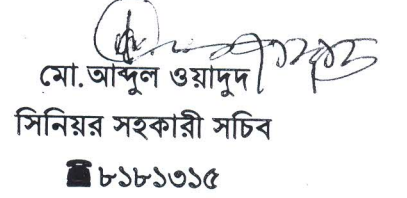 মো. আব্দুল ওয়াদুদ
সিনিয়র সহকারী সচিব
☎৮১৮১৩১৫